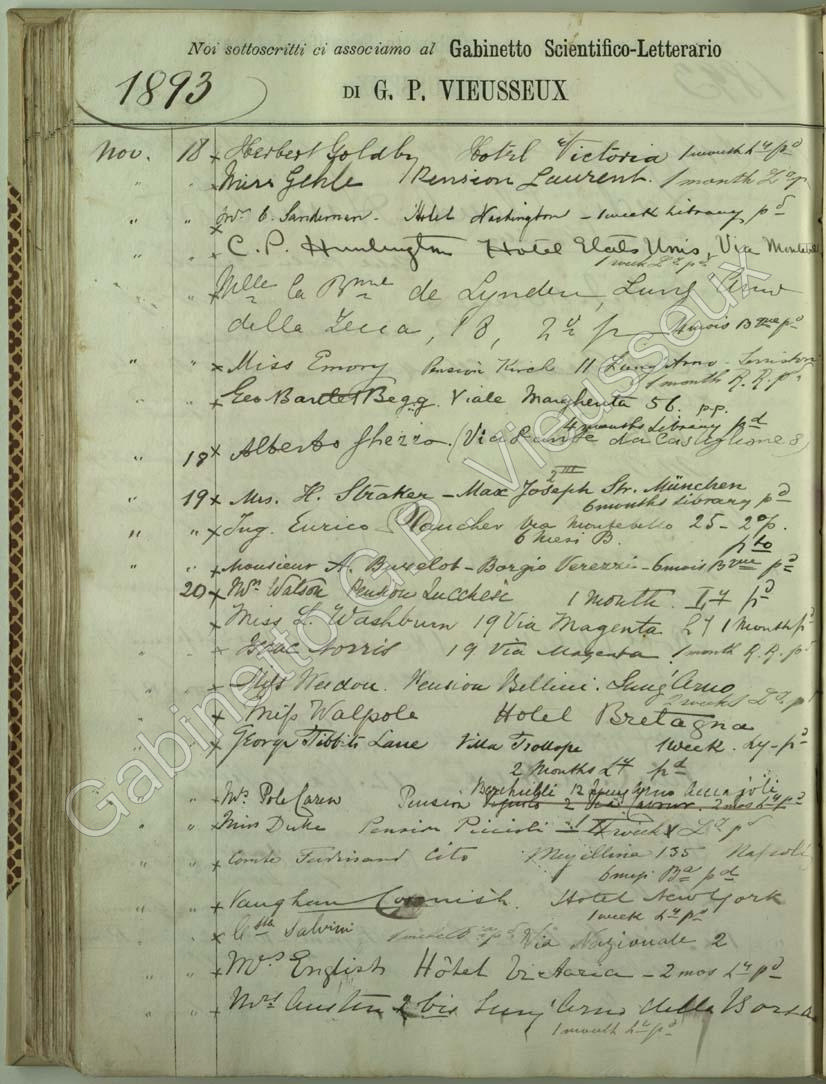 Noi sottoscritti ci associamo al Gabinetto Scientifico-Letterario
1893
DI G. P. VIEUSSEUX
Nov. 18 x Herbert Goldby Hotel Victoria 1 month Ly pd
" " x Miss Gehle Pension Laurent. 1 month
" " x Mrs C. Sanderman - Hotel Washington - 1 week Library pd
" " x C. P. Huntington Hotel Etats Unis, Via Montebello
1 week Ly pd
" " x Melle la Bnne de Lynden, Lung'Arno
della Zecca, 18, 2o p mois Bque pd
" " x Miss Emory Pension Kirch 11 Lung Arno Serristori
1 month R. R. pd
" " x Geo Bartlet Begg. Viale Margherita 56. p.p.
4 months Library pd
18 x Alberto Ghezzo (Via Dante da Castiglione 8)
19 x Mrs. H. Straker - Max Joseph Str. München
2 III
6 months Library pd
" " x Ing. Enrico Via Montebello 25 - 2o p.
6 Mesi B. pto
" " x Monsieur A. - Borgio Verezzi - 6 mois Bque pd
20 x Mrs Watson Pension Lucchesi 1 Month. Ly pd
Miss L. Washburn 19 Via Magenta Ly 1 Month pd
" " x Isaac Norris 19 Via Magenta 1 month R. R. pd
" " x Miss Weedon. Pension Bellini. Lung'Arno
weeks
" " x Miss Walpole Hotel Bretagna
" " x George Tibbits Lane Villa Trollope 1 week. Ly - pd
2 Months Ly pd
" " x Mrs Pole Carew Pension 12 Lung Arno Acciajoli
2 mos Ly pd
" " x Miss Duke Pension Piccioli - weeks
" " x Conte Ferdinand Cito Mergellina 135 Napoli
6 mesi Ba pd
" " x Vaughan Cornish. Hotel New York
1 week Ly pd
" x Csta Salvini Via Nazionale 2
" " x Mrs English Hôtel Victoria - 2 mos Ly pd
" " x Mrs Austin 2 bis Lung'Arno della Borsa
1 month Ly pd
Gabinetto G.P. Vieusseux